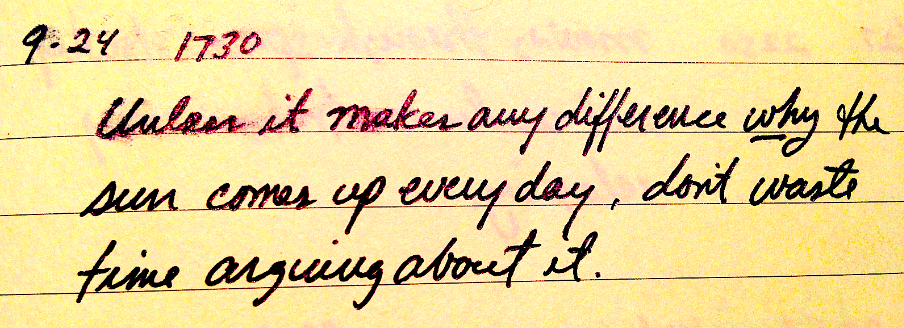 9-24 1730
Unless it makes any difference why the
sun comes up every day, don't waste
time arguing about it.